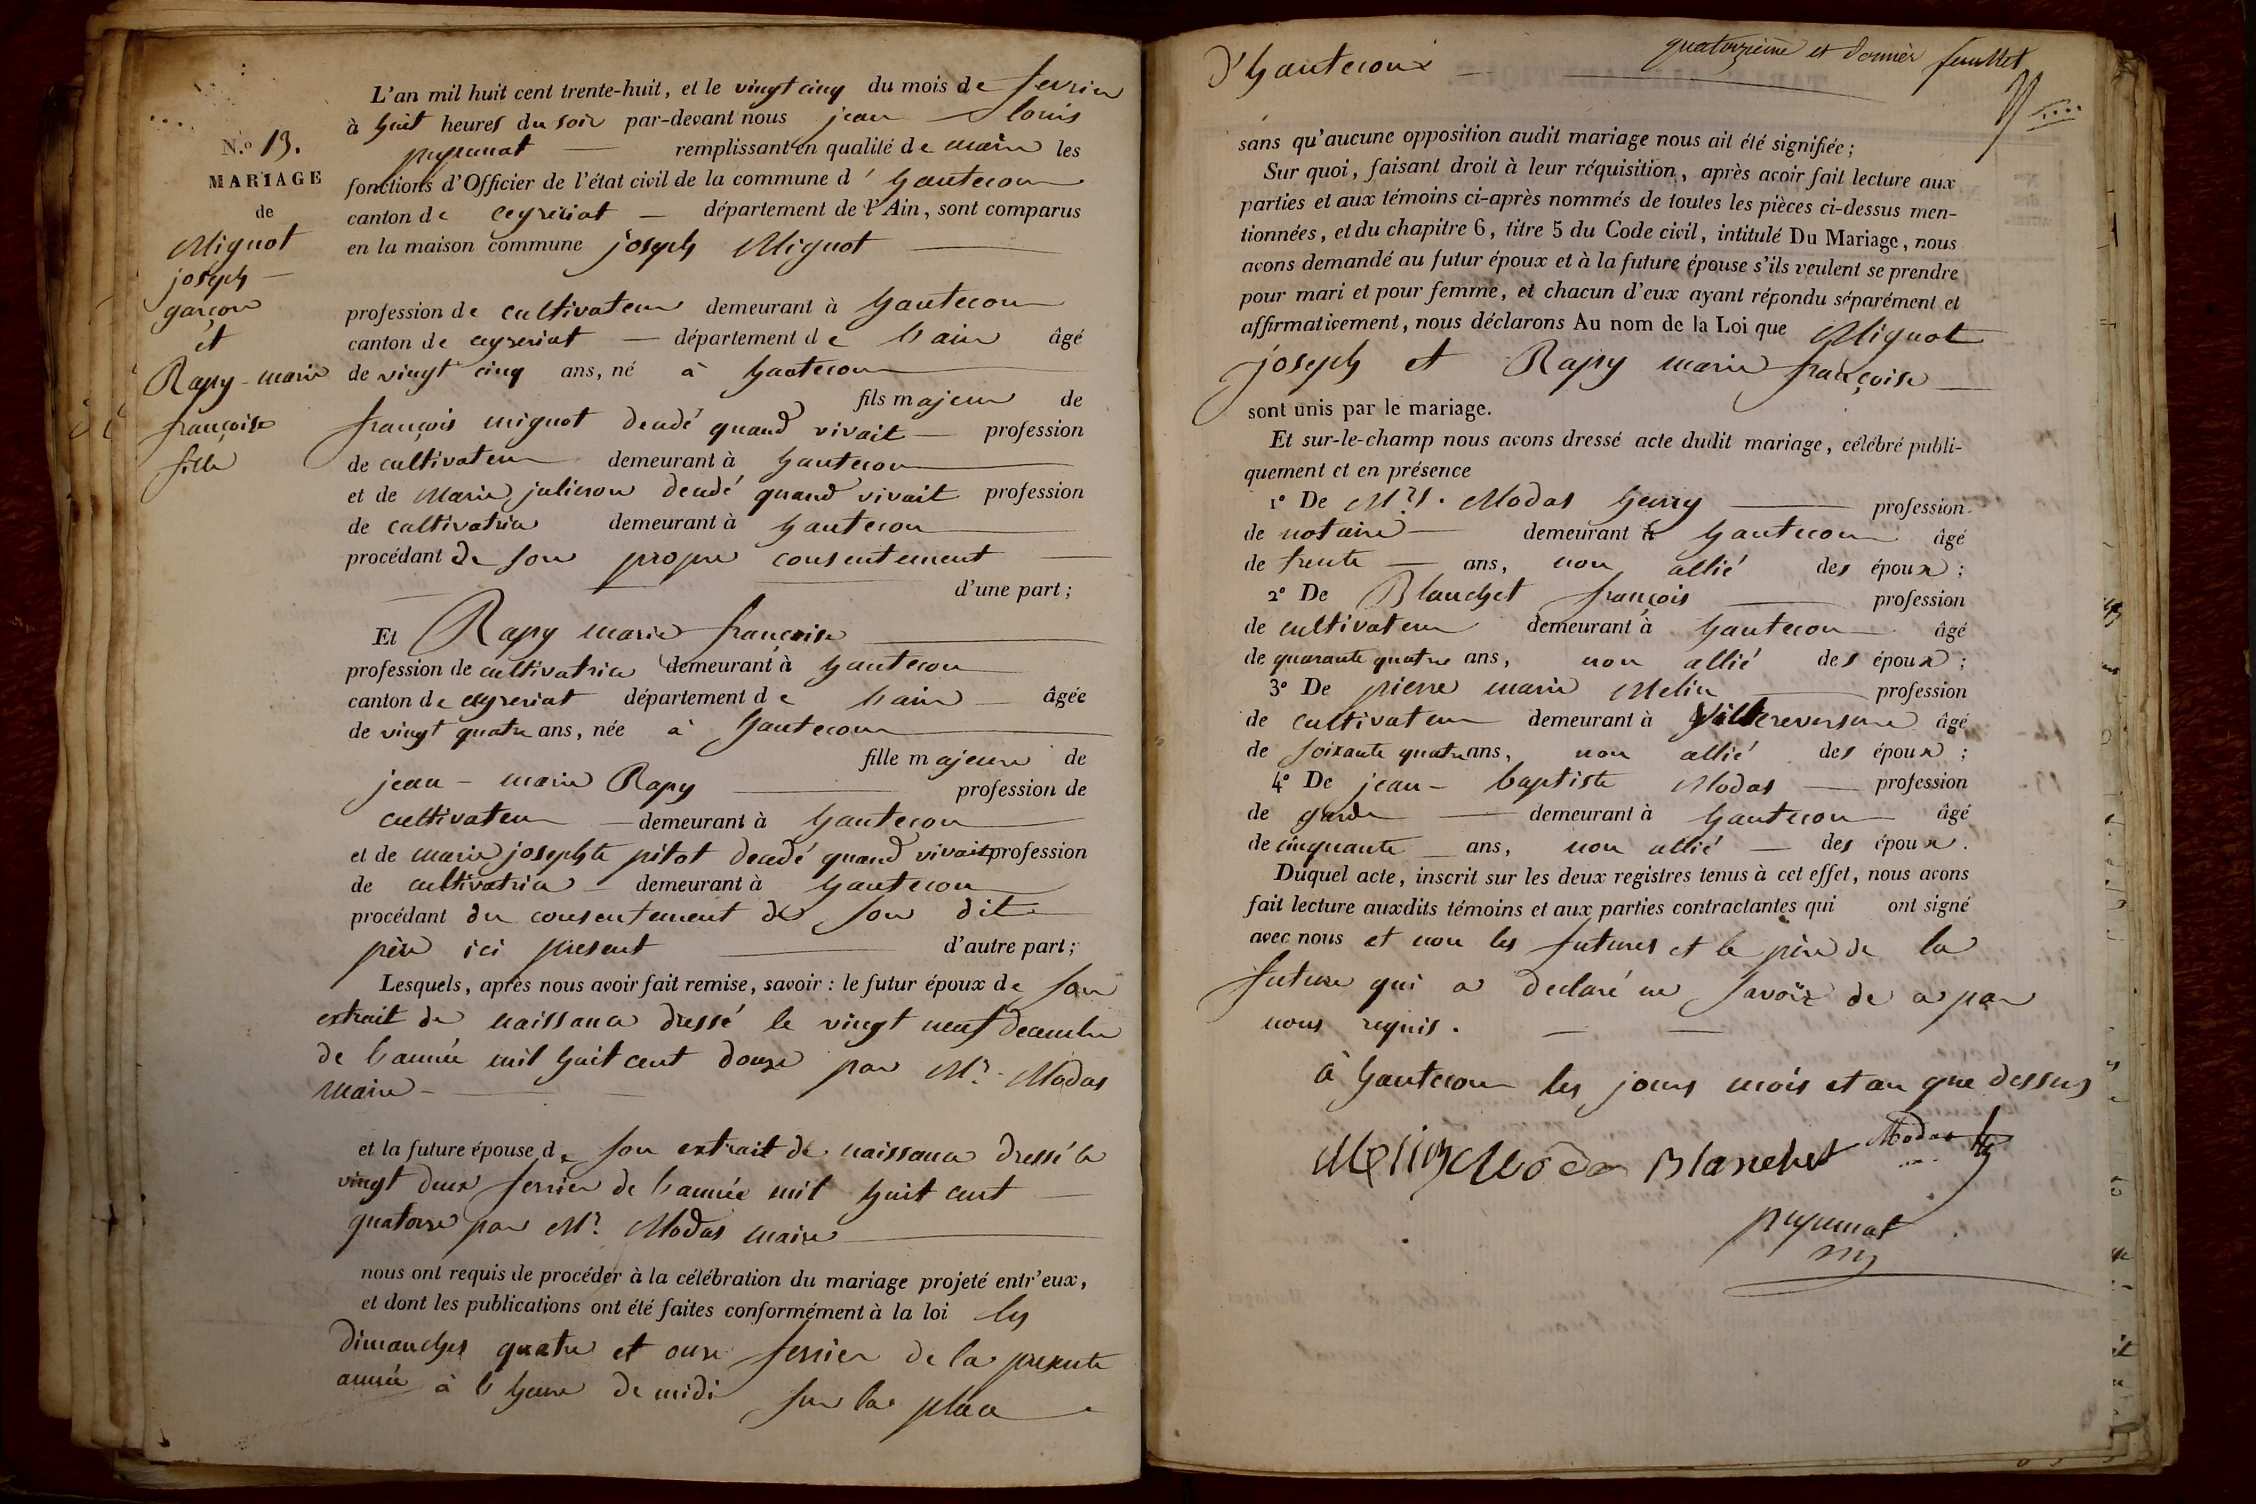 N.º 13.
MARIAGE
de
Mignot
joseph
garçon
et
Rapy - marie
françoise
fille
L'an mil huit cent trente-huit, et le vingt cinq du mois de fevrier
à huit heures du soir par-devant nous jean louis
puyunat remplissant en qualité de maire les
fonctions d'Officier de l'état civil de la commune d' hautecour
canton de ceyseriat département de l'Ain, sont comparus
en la maison commune joseph Mignot
profession de cultivateur demeurant à hautecour
canton de ceyseriat département de l'ain âgé
de vingt cinq ans, né à hautecour
fils majeur de
françois mignot decedé quand vivait profession
de cultivateur demeurant à hautecour
et de Marie julieron decedé quand vivait profession
de cultivatrice demeurant à hautecour
procédant de son propre consentement
d'une part;
Et Rapy marie françoise
profession de cultivatrice demeurant à hautecour
canton de ceyseriat département de l'ain âgée
de vingt quatre ans, née à hautecour
fille majeure de
jean - marie Rapy profession de
cultivateur demeurant à hautecour
et de marie josephte pitot decedé quand vivait profession
de cultivatrice demeurant à hautecour
procédant du consentement de son dit
père ici présent d'autre part;
Lesquels, après nous avoir fait remise, savoir : le futur époux de son
extrait de naissance dressé le vingt neuf decembre
de l'année mil huit cent douze par Mr. Modas
maire
et la future épouse de son extrait de naissance dressé le
vingt deux fevrier de l'année mil huit cent
quatorze par Mr. Modas maire
nous ont requis de procéder à la célébration du mariage projeté entr'eux,
et dont les publications ont été faites conformément à la loi les
dimanches quatre et onze fevrier de la presente
année à l'heure de midi sur la place
d'hautecour
quatorzième et dernier feuillet
sans qu'aucune opposition audit mariage nous ait été signifiée;
Sur quoi, faisant droit à leur réquisition, après avoir fait lecture aux
parties et aux témoins ci-après nommés de toutes les pièces ci-dessus men-
tionnées, et du chapitre 6, titre 5 du Code civil, intitulé Du Mariage, nous
avons demandé au futur époux et à la future épouse s'ils veulent se prendre
pour mari et pour femme, et chacun d'eux ayant répondu séparément et
affirmativement, nous déclarons Au nom de la Loi que Mignot
joseph et Rapy marie françoise
sont unis par le mariage.
Et sur-le-champ nous avons dressé acte dudit mariage, célébré publi-
quement et en présence
1º De Mrs. Modas henry profession
de notaire demeurant à hautecour âgé
de trente ans, non allié des époux;
2º De Blanchet françois profession
de cultivateur demeurant à hautecour âgé
de quarante quatre ans, non allié des époux;
3º De pierre marie Melin profession
de cultivateur demeurant à Villereversure âgé
de soixante quatre ans, non allié des époux;
4º De jean - baptiste Modas profession
de garde demeurant à hautecour âgé
de cinquante ans, non allié des époux.
Duquel acte, inscrit sur les deux registres tenus à cet effet, nous avons
fait lecture auxdits témoins et aux parties contractantes qui ont signé
avec nous et non les futures et le père de la
future qui a declaré ne savoir de a par
nous requis.
à hautecour les jours mois et an que dessus
Melin Modas Blanchet Modas hy
puyunat